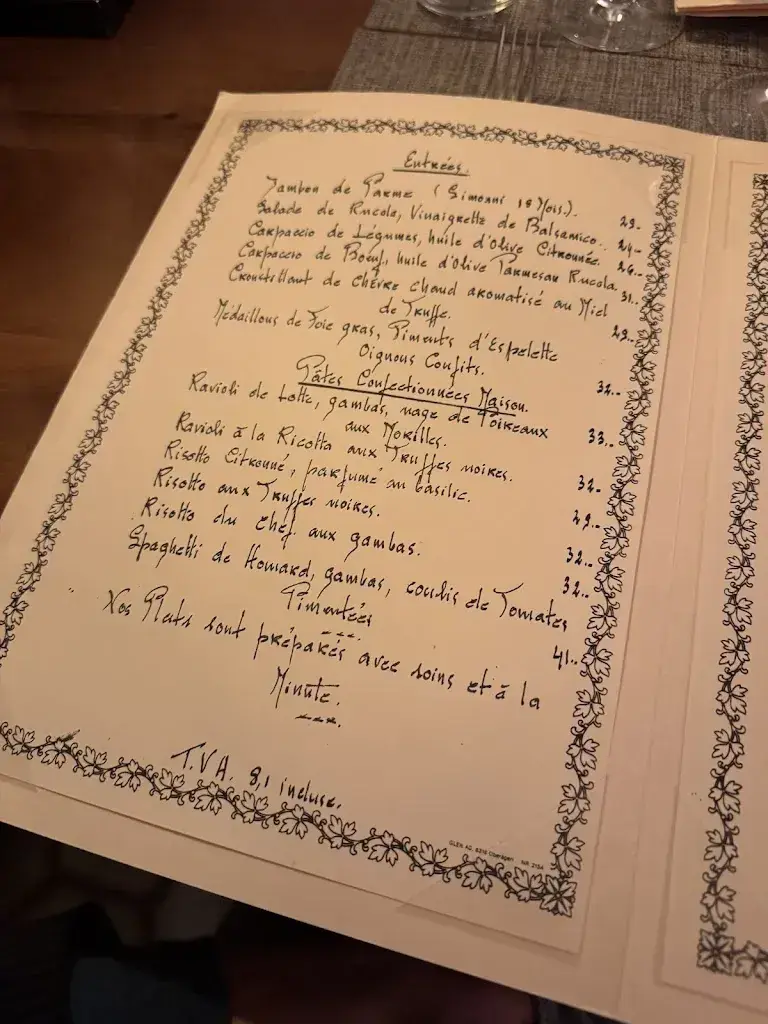 Entrées.
Jambon de Parme ( Simonni 18 Mois.). 29.-
Salade de Rucola, Vinaigrette de Balsamico.. 24.-
Carpaccio de Légumes, huile d'Olive Citronnée. 26..
Carpaccio de Boeuf, huile d'Olive Parmesan Rucola. 31..
Croustillant de chèvre chaud aromatisé au Miel
de Truffe. 29..
Médaillons de Foie gras, Piments d'Espelette
Oignons Confits. 32..
Pâtes Confectionnées Maison.
Ravioli de Lotte, gambas, nage de Poireaux
aux Morilles. 33..
Ravioli à la Ricotta aux Truffes noires. 32.-
Risotto Citronné, parfumé au basilic. 29..
Risotto aux Truffes noires. 32..
Risotto du chef aux gambas. 32..
Spaghetti de Homard, gambas, coulis de Tomates
Pimentées 41..
Nos Plats sont préparés avec soins et à la
Minute.
T.V.A. 8,1 incluse.
GLEN AG, 6315 Oberägeri NR. 2154